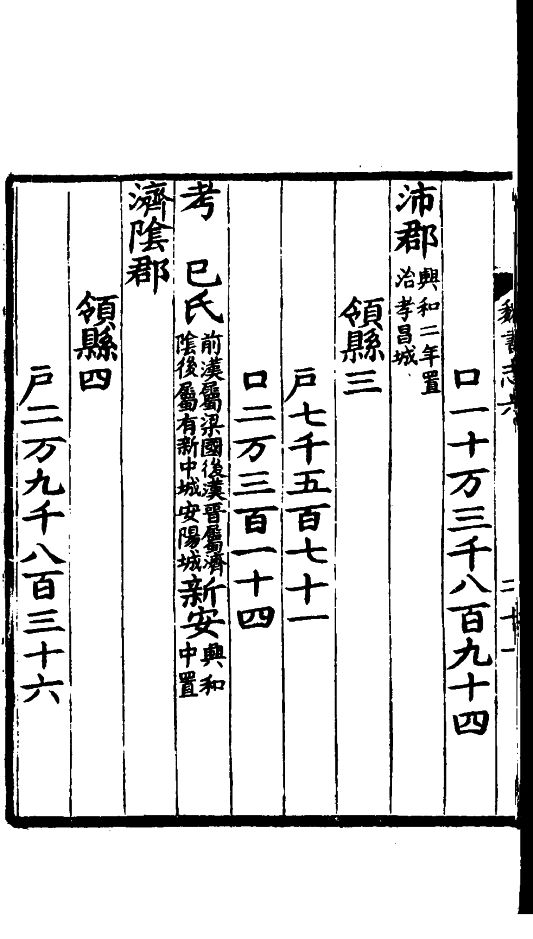 魏書志六
二十一
口一十万三千八百九十四
沛郡 興和二年置治孝昌城
領縣三
戸七千五百七十一
口二万三百一十四
考 巳氏 前漢屬梁國後漢晉屬濟陰後屬有新中城安陽城 新安 興和中置
濟陰郡
領縣四
戸二万九千八百三十六